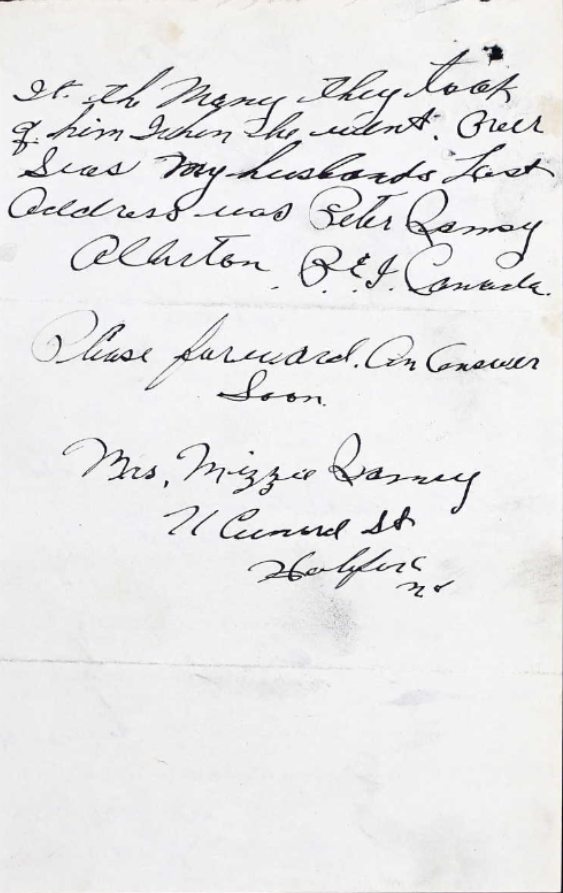 It. th Money they took
of him when he went. Over
Seas My husbands Last
Address was Peter Ramsy
Alberton P.E.I. Canada.
Please forward. An Answer
Soon.
Mrs, Mizzie Ramsey
71 Cunard St
Halifax
ns